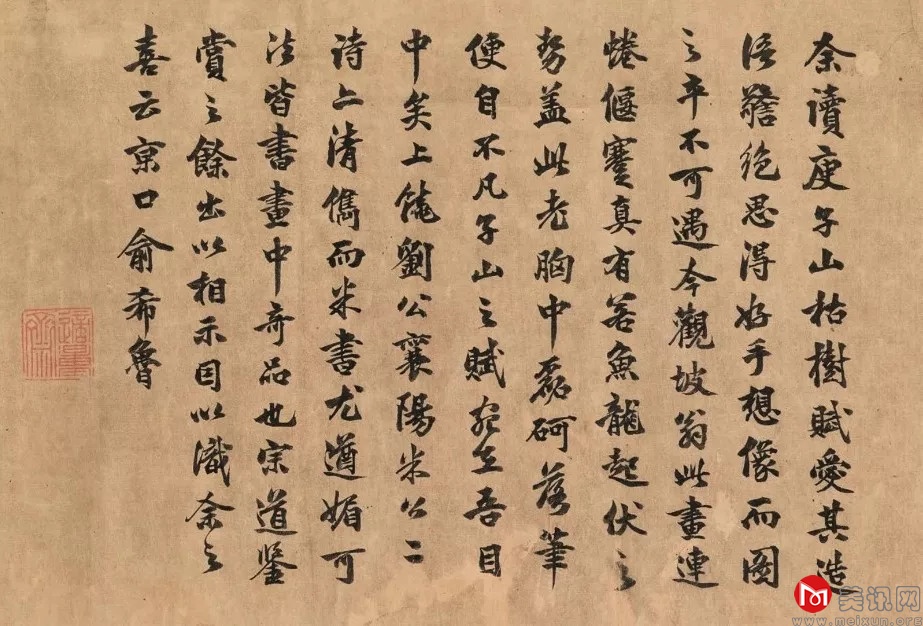 余讀庾子山枯樹賦愛其造
語警絶思得好手想像而圖
之卒不可遇今觀坡翁此畫連
蜷偃蹇真有若魚龍起伏之
勢蓋此老胸中磊砢落筆
便自不凡子山之賦宛在吾目
中矣上饒劉公襄陽米公二
詩亦清儁而米書尤遒媚可
法皆書畫中奇品也宗道鑒
賞之餘出以相示因以識余之
喜云京口俞希魯
美讯网
www.meixun.org